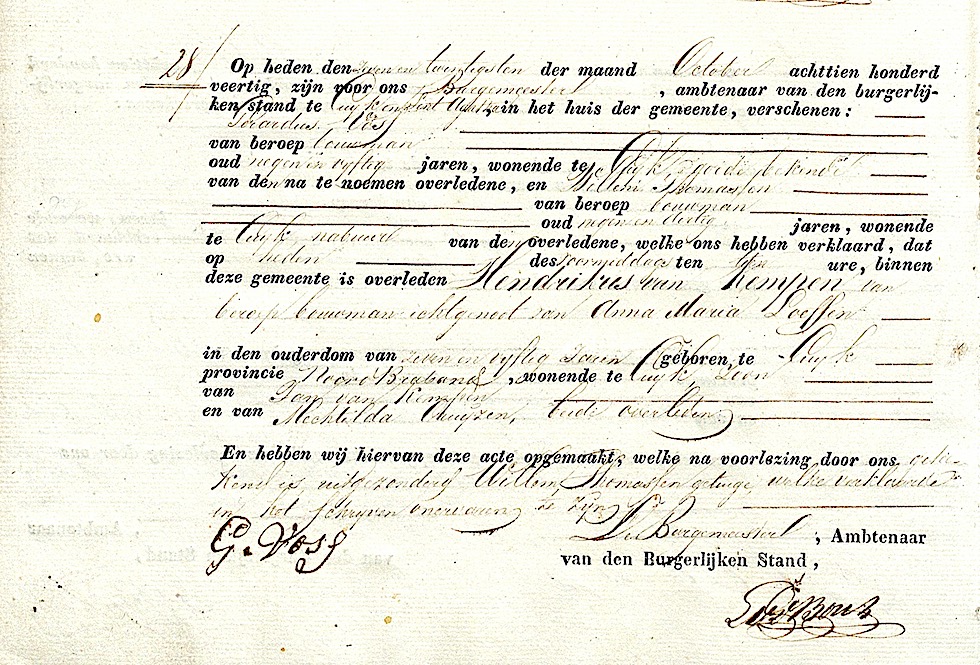 28
Op heden den zeven en twintigsten der maand October achttien honderd
veertig, zijn voor ons Burgemeester , ambtenaar van den burgerlij-
ken stand te Cuyk en Sint Agatha, in het huis der gemeente, verschenen :
Gerardus Vos
van beroep bouwman
oud negen en vyftig jaren, wonende te Cuyk, goede bekende
van den na te noemen overledene, en Willem Thomassen
van beroep bouwman
oud negen en dertig jaren, wonende
te Cuyk, nabuur van den overledene, welke ons hebben verklaard, dat
op heden des voormiddags ten ure, binnen
deze gemeente is overleden Hendrikus van Kempen van
beroep bouwman echtgenoot van Anna Maria Loeffen
in den ouderdom van zeven en vyftig Jaren geboren te Cuyk
provincie Noord Braband , wonende te Cuyk, Zoon
van Jan van Kempen
en van Mechtilda beide overleden
En hebben wij hiervan deze acte opgemaakt, welke na voorlezing door ons getee-
kend is, uitgezonderd Willem Thomassen getuige, welke verklaarde
in het schryven onervaren te zyn
G. Voss
De Burgemeester , Ambtenaar
van den Burgerlijken Stand,